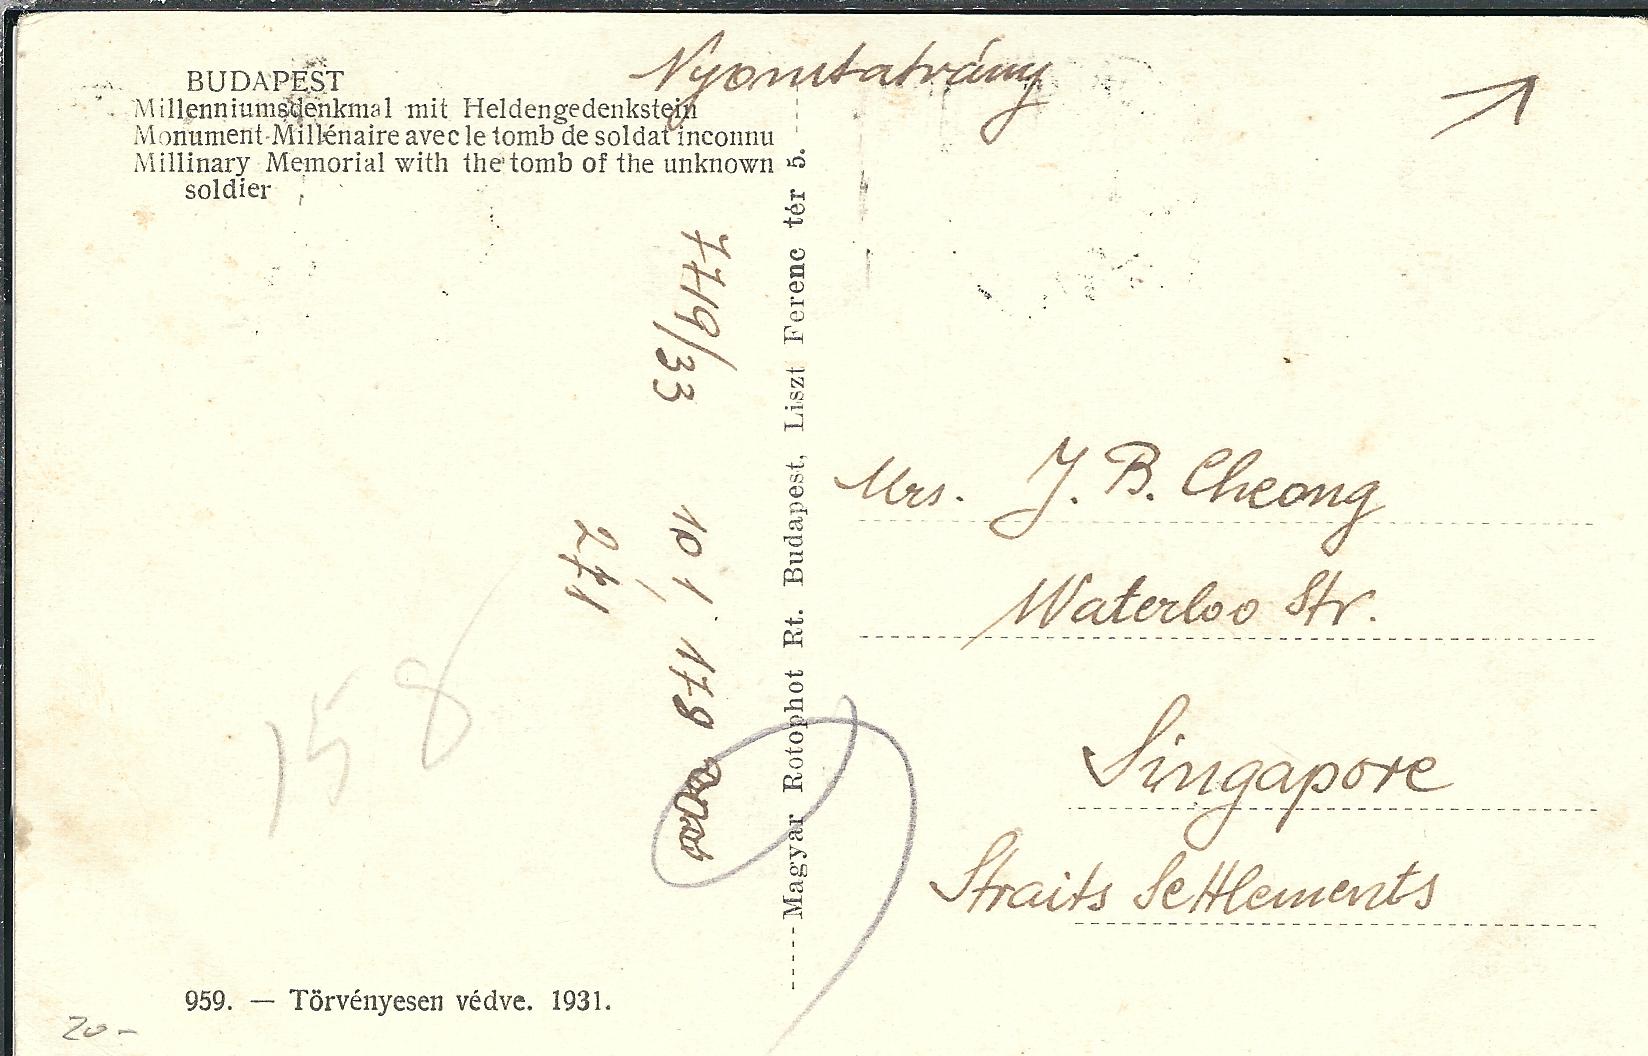 BUDAPEST
Millenniumsdenkmal mit Heldengedenkstein
Monument-Millénaire avec le tomb de soldat inconnu
Millinary Memorial with the tomb of the unknown
soldier
Nyomtatvány
Magyar Rotophot Rt. Budapest, Liszt Ferenc tér 5.
101 179
271
158
Mrs. J. B. Cheong
Waterloo Str.
Singapore
Straits Settlements
959. — Törvényesen védve. 1931.
20-